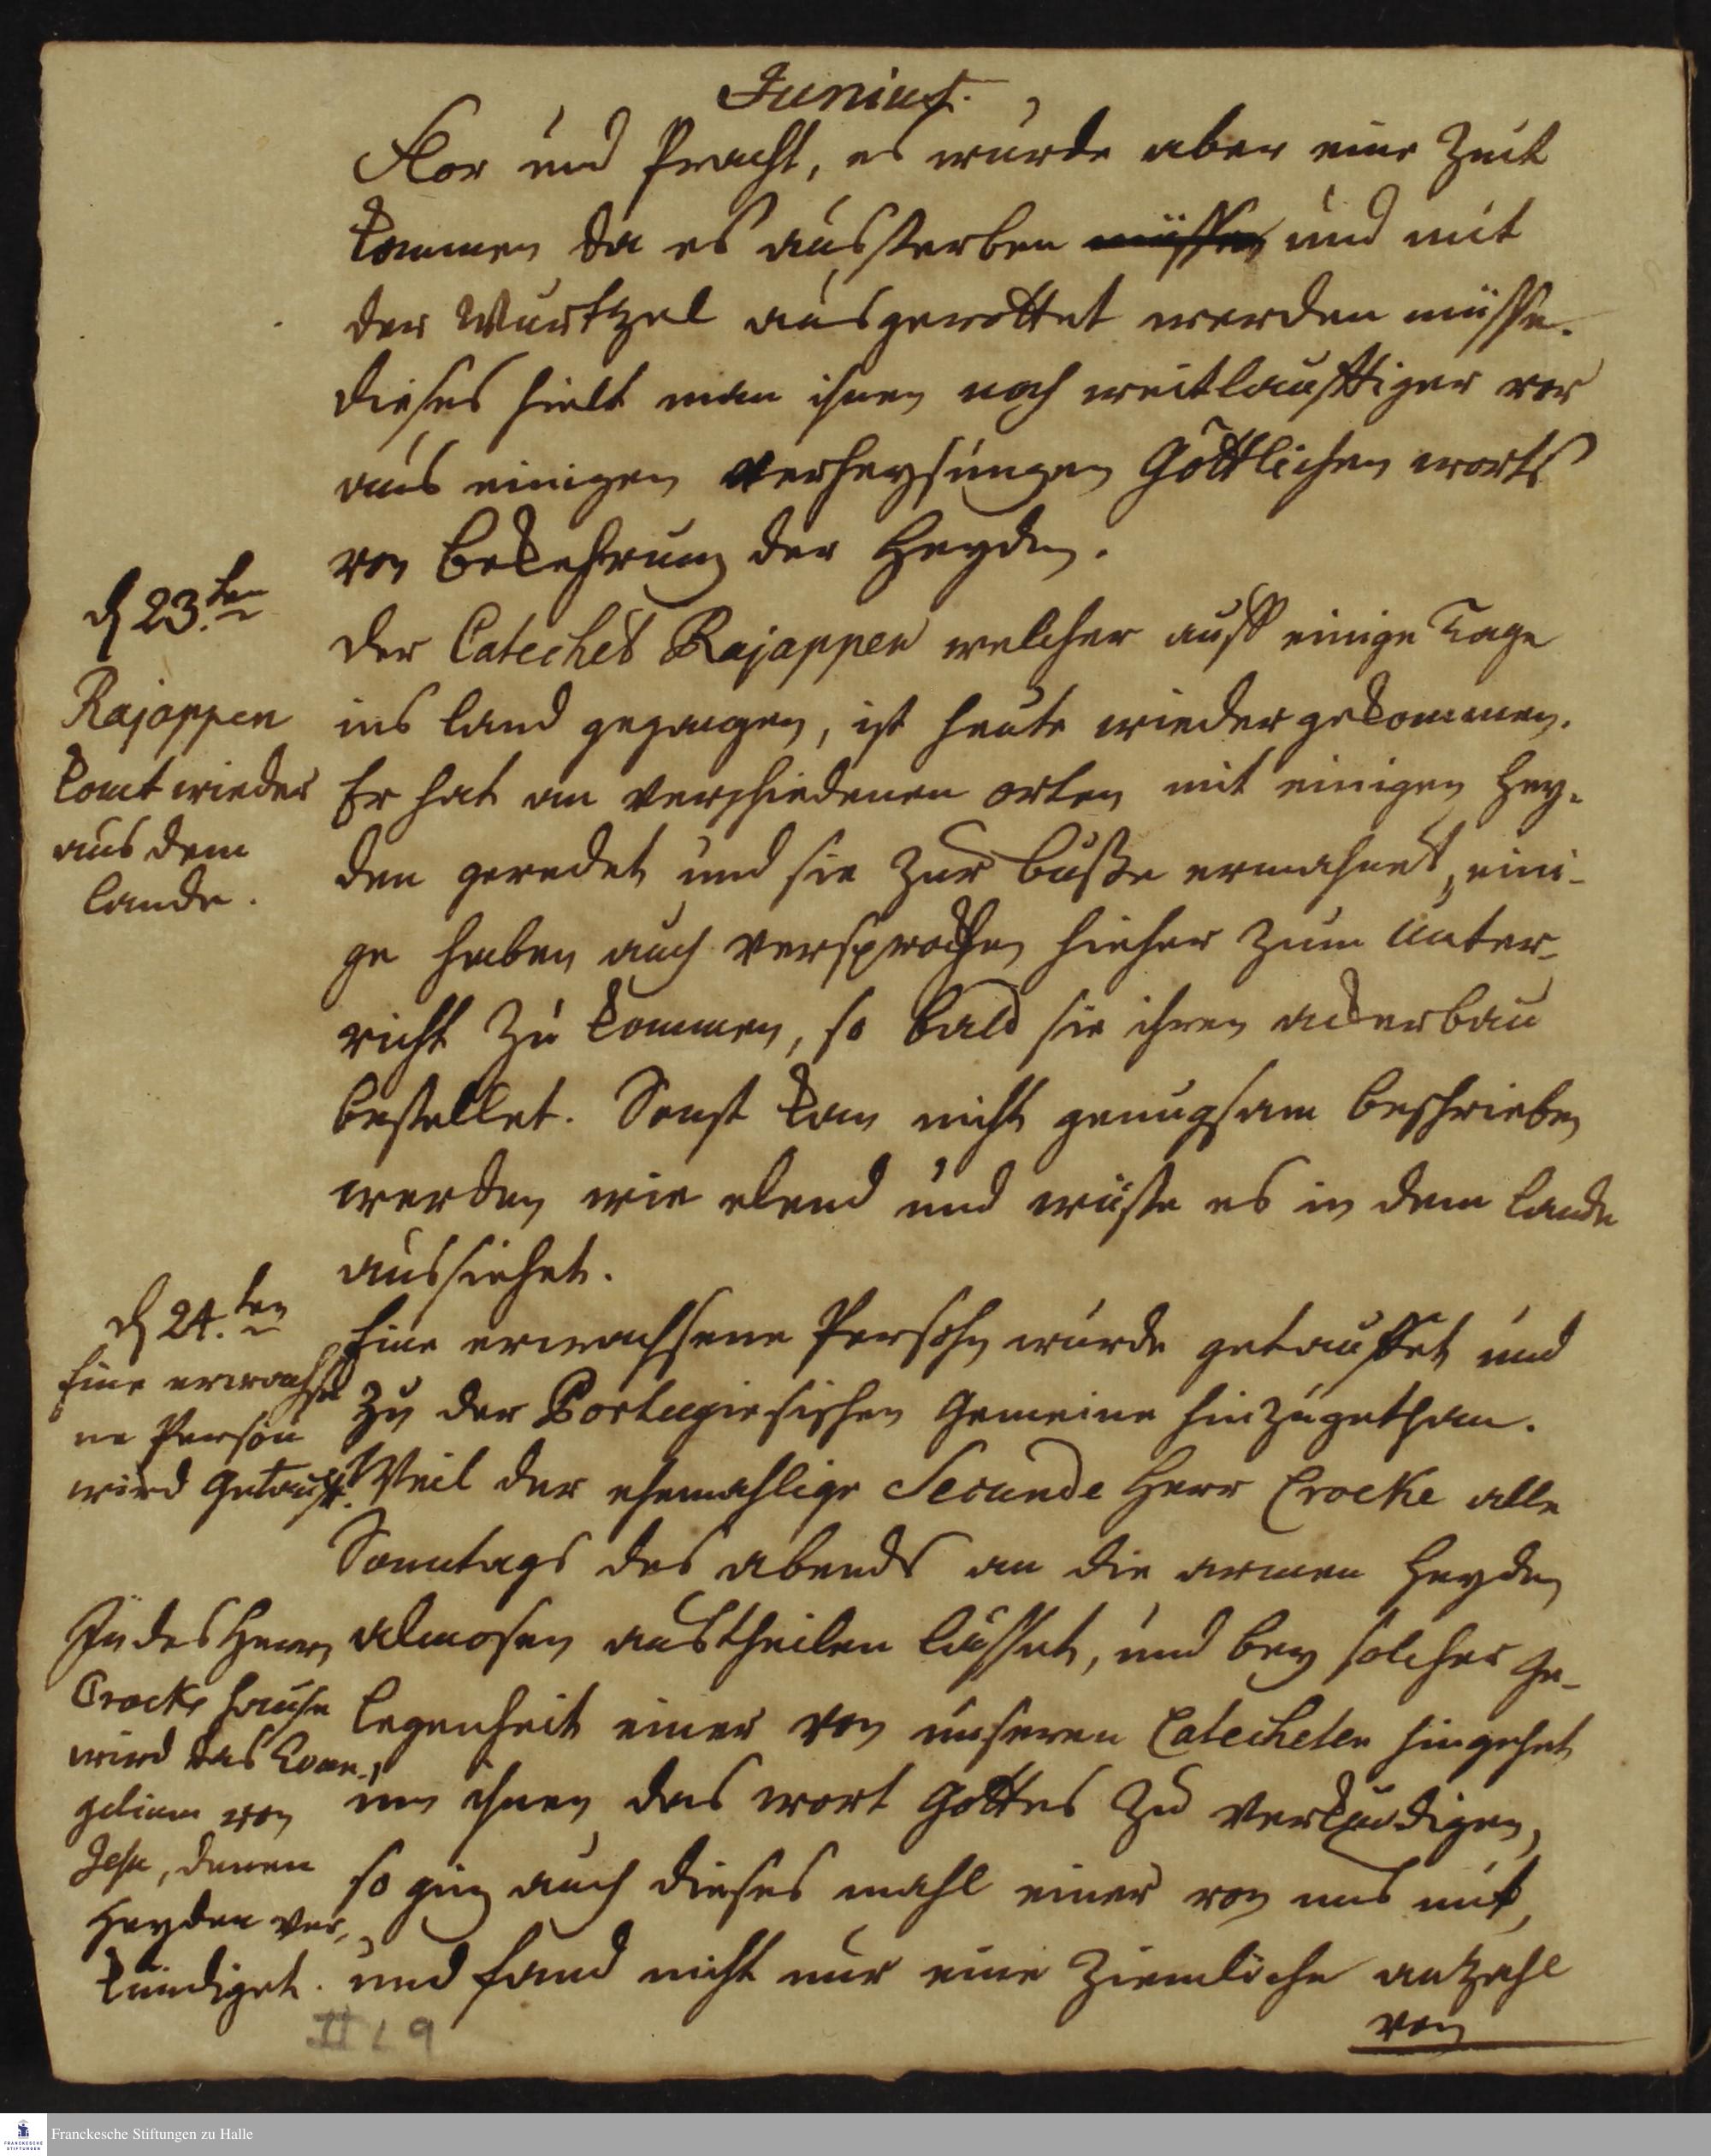 Junius.
Flor und Pracht, es wurde aber eine Zeit
kommen da es aussterben müssen und mit
der Wurtzel ausgerottet werden müsse.
dieses hielt man ihnen noch weitläufftiger vor
aus einigen verheysungen Göttlichen worts
von bekehrung der Heyden.
d 23.ten
Rajappen
komt wieder
aus dem
lande.
der Catechet Rajappen welcher auff einige Tage
ins land gegangen, ist heute wieder gekommen.
Er hat an verschiedenen orten mit einigen Hey-
den geredet und sie zur buße ermahnet, eini-
ge haben auch versprochen hieher zum unter-
richt zu kommen, so bald sie ihren ackerbau
bestellet. Sonst kan nicht genugsam beschrieben
werden wie elend und wüste es in dem lande
aussiehet.
d 24.ten
Eine erwachse
ne Person
wird getaufft.
Eine erwachsene Persohn wurde getauffet und
zu der Portugiesischen Gemeine hinzugethan.
Weil der ehemahlige Secunde Herr Crocke alle
Sonntags des abends an die armen Heyden
almosen austheilen lässet, und bey solcher ge-
legenheit einer von unseren Catecheten hingehet
um ihnen das wort Gottes zu verkündigen,
so ging auch dieses mahl einer von uns mit,
und fand nicht nur eine ziemliche anzahl
In des Herrn
Crocke hause
wird das Evan-
gelium von
Jesu, denen
Heyden ver-
kündiget.
von
II L 9
Franckesche Stiftungen zu Halle